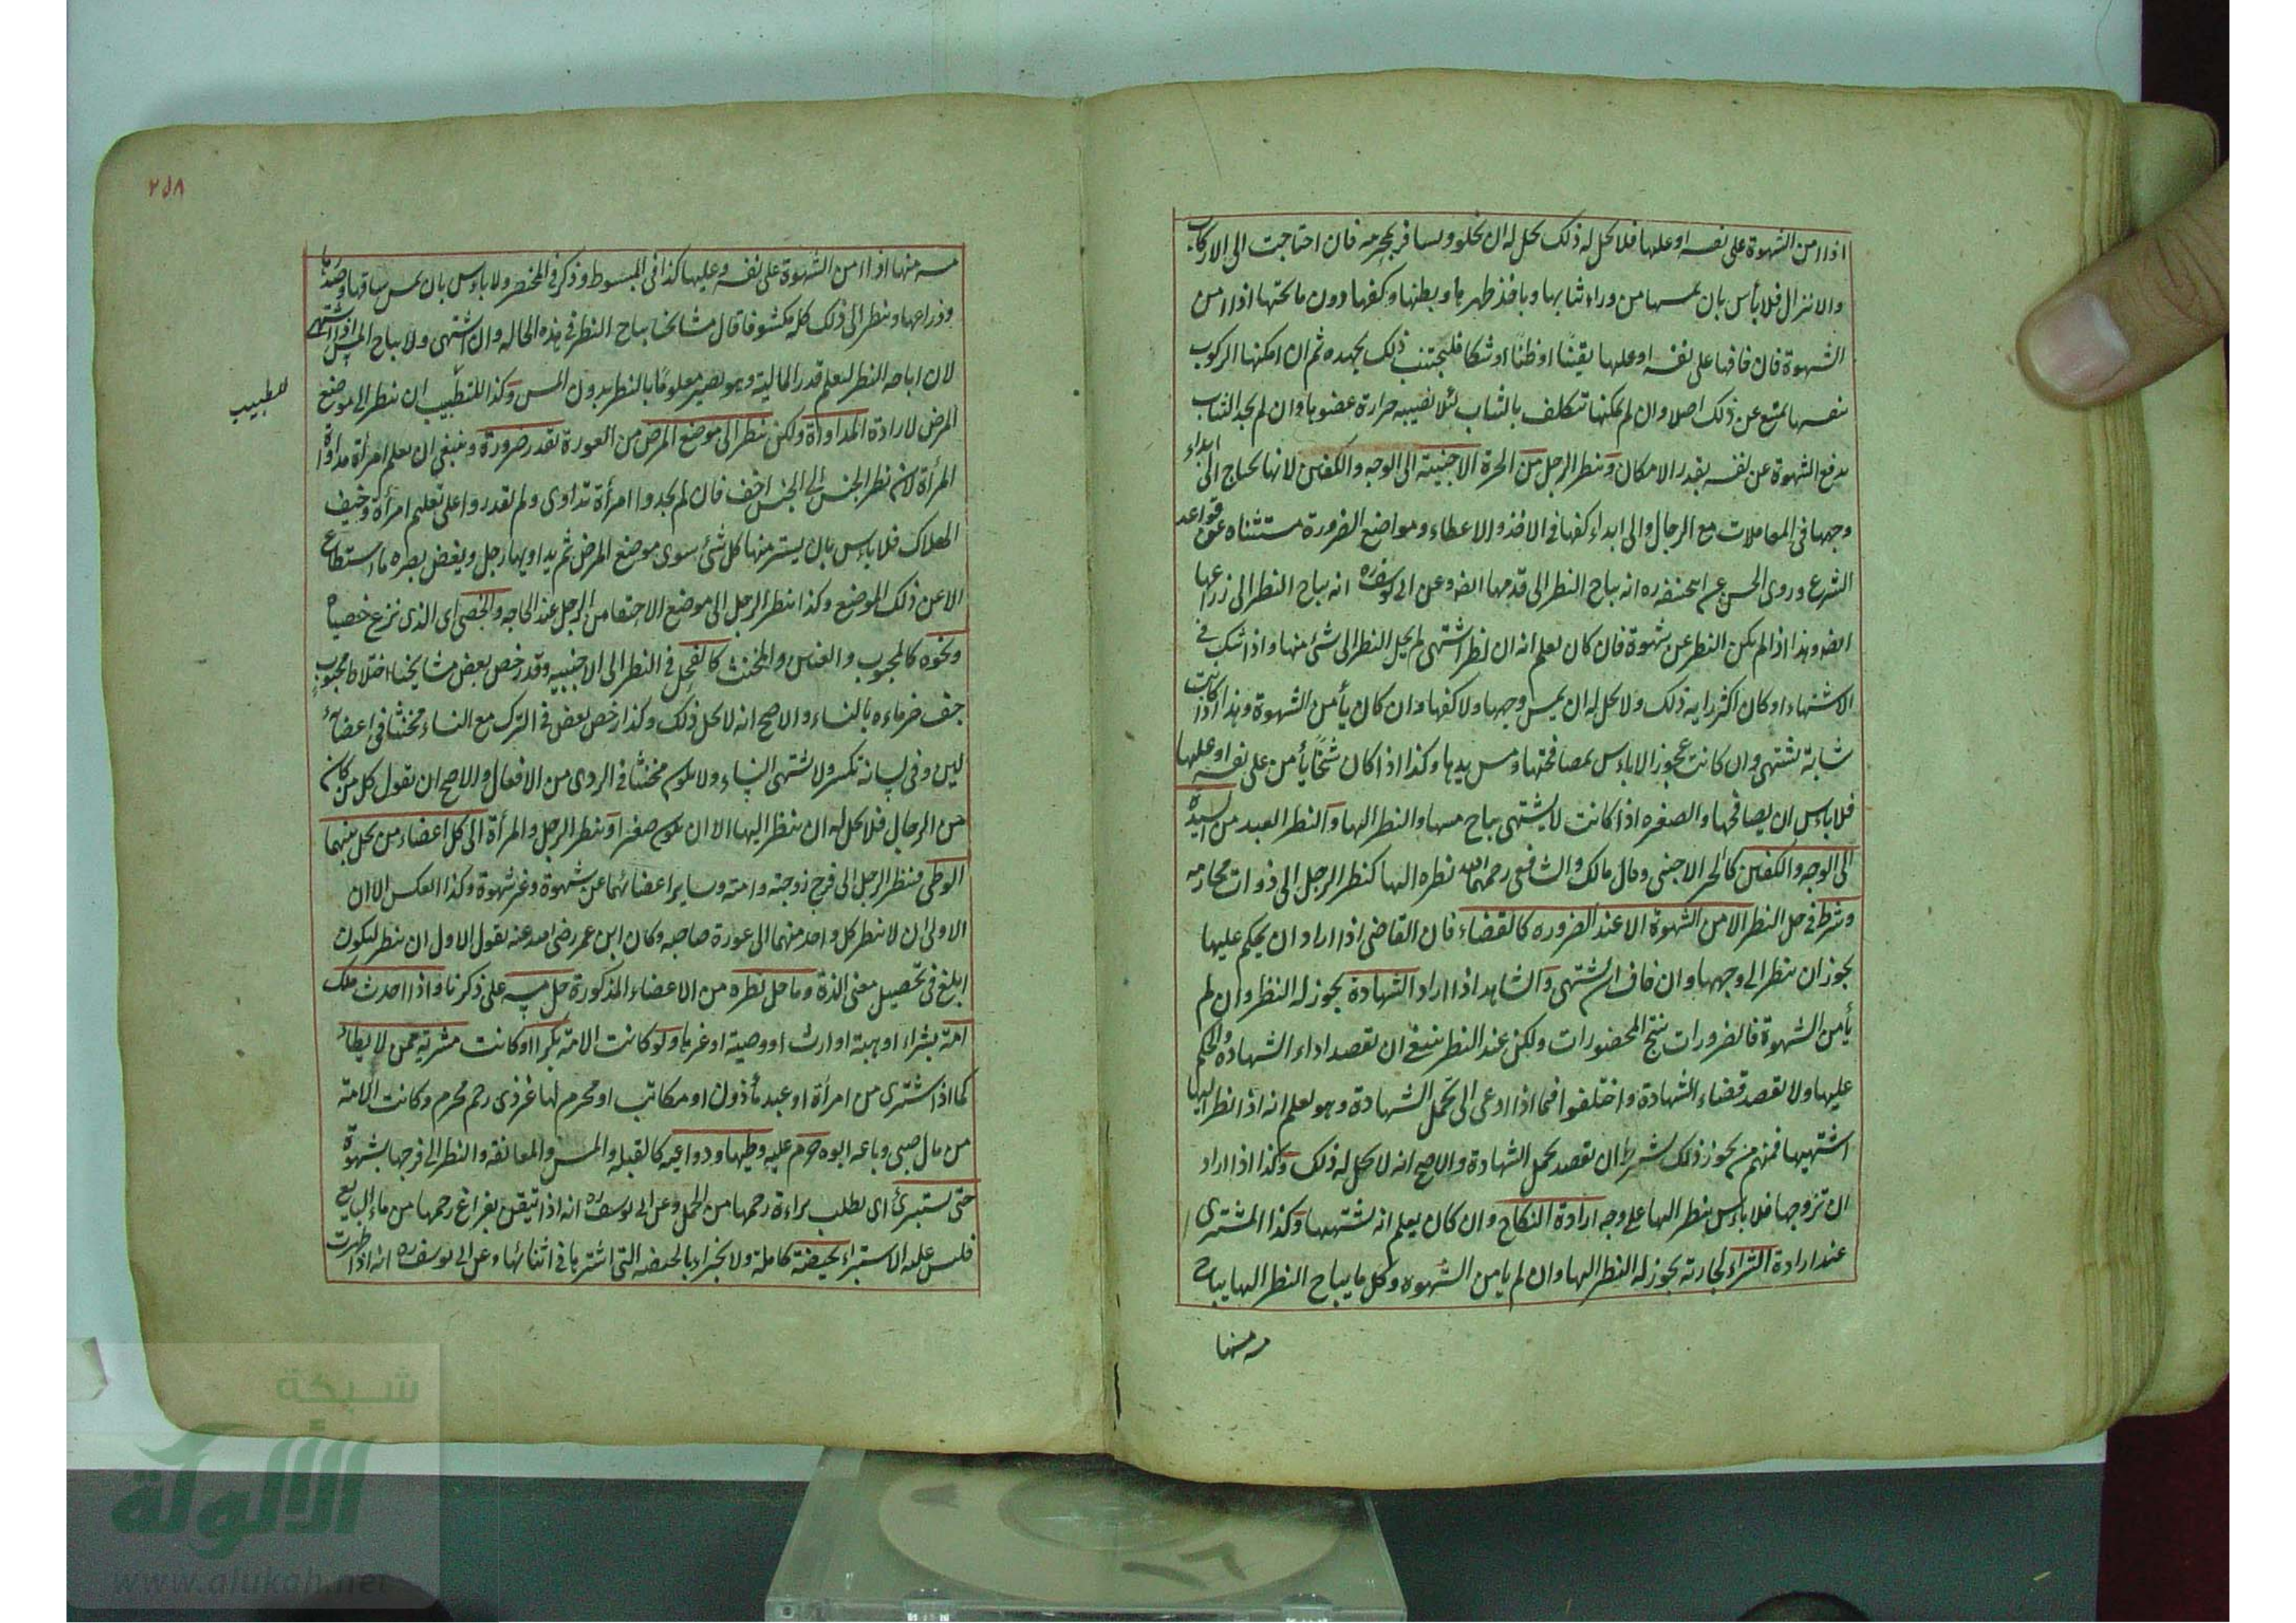 اذا امن الشهوة على نفسه او عليها فلا يحل له ذلك يحل له ان يخلو ويسافر بمحرمه فان احتاجت الى الاركاب
والانزال فلا بأس بان يمسها من وراء ثيابها وياخذ ظهرها وبطنها وكفها دون ما تحتها اذا امن
الشهوة فان خافها على نفسه او عليها يقينًا او ظنًا او شكا فليجتنب ذلك بجهده ثم ان امكنها الركوب
بنفسها يمتنع عن ذلك اصلا وان لم يمكنها تتكلف بالثياب لئلا تصيبه حرارة عضوها وان لم يجد الثياب
يدفع الشهوة عن نفسه بقدر الامكان وينظر الرجل من الحرة الاجنبية الى الوجه والكفين لانها تحتاج الى ابداء
وجهها في المعاملات مع الرجال والى ابداء كفها في الاخذ والاعطاء ومواضع الضرورة مستثناه عن قواعد
الشرع وروى الحسن عن ابيحنيفه ره انه يباح النظر الى قدمها ايضا وعن ابي يوسف ره انه يباح النظر الى ذراعها
ايضا وهذا اذا لم يكن النظر عن شهوة فان كان يعلم انه ان نظر اشتهى لم يحل النظر الى شئ منها واذا شك في
الاشتهاء او كان اكثر رايه ذلك ولا يحل له ان يمس وجهها ولا كفها وان كان يأمن الشهوة وهذا اذا كانت
شابة تشتهى وان كانت عجوزا لا بأس بمصافحتها ومس يدها وكذا اذا كان شيخًا يأمن على نفسه او عليها
فلا بأس ان يصافحها والصغيره اذا كانت لا يشتهى يباح مسها والنظر اليها والنظر العبد من السيدة
الى الوجه والكفين كالحر الاجنبى وقال مالك والشافعى رحمهما الله نظره اليها كنظر الرجل الى ذوات محارمه
وشرط في حل النظر الامن الشهوة الا عند الضروره كالقضاء فان القاضى اذا اراد ان يحكم عليها
يجوز ان ينظر الى وجهها وان خاف ان يشتهى والشاهد اذا اراد الشهادة يجوز له النظر وان لم
يأمن الشهوة فالضرورات تبيح المحضورات ولكن عند النظر ينبغى ان يقصد اداء الشهادة والحكم
عليها ولا يقصد قضاء الشهادة واختلفوا فيما اذا دعى الى تحمل الشهادة وهو يعلم انه اذا نظر اليها
اشتهيها فمنهم من يجوز ذلك بشرط ان يقصد تحمل الشهادة والاصح انه لا يحل له ذلك وكذا اذا اراد
ان تزوجها فلا بأس ينظر اليها على وجه ارادة النكاح وان كان يعلم انه يشتهيها وكذا المشترى
عند ارادة الشراء لجاريته يجوز له النظر اليها وان لم يامن الشهوه وكل ما يباح النظر اليها يباح
مسه منها
٢٥٨
مسه منها اذا امن الشهوة على نفسه وعليها كذا في المبسوط وذكر في المختصر ولا بأس بان يمس ساقها وصدرها
وذراعها وينظر الى ذلك كله مكشوفا قال مشايخنا يباح النظر في هذه الحاله وان اشتهى ولا يباح المس اذا اشتهى
لان اباحه النظر ليعلم قدر المالية وهو يصير معلومًا بالنظر بدون المس وكذا للتطبيب ان ينظر الى موضع
للطبيب
المرض لارادة المداواة ولكن ينظر الى موضع المرض من العورة بقدر ضرورة وينبغى ان يعلم امرأة مداواة
المرأة لان نظر الجنس الى الجنس اخف فان لم يجدوا امرأة تداوى ولم يقدروا على تعليم امرأة وخيف
الهلاك فلا بأس بان يستر منها كل شئ سوى موضع المرض ثم يداويها رجل ويغض بصره ما استطاع
الا عن ذلك الموضع وكذا ينظر الرجل الى موضع الاحتقان من الرجل عند الحاجه والخصى اى الذى نزع خصياه
ونحوه كالمجبوب والعنين والمخنث كالفحل في النظر الى الاجنبيه وقد رخص بعض مشايخنا اختلاط مجبوب
جف ماءه بالنساء والاصح انه لا يحل ذلك وكذا رخص بعض في الترك مع النساء مخنثا في اعضائه
لين وفى لسانه تكسر ولا يشتهى النساء ولا يكون مخنثا في الردى من الافعال والاصح ان نقول كل من كان
من الرجال فلا يحل له ان ينظر اليها الا ان يكون صغيرا وينظر الرجل والمرأة الى كل اعضاء من يحل بينهما
الوطى فينظر الرجل الى فرج زوجته وامته وساير اعضائهما عن شهوة وغير شهوة وكذا العكس الا ان
الاولى ان لا ينظر كل واحد منهما الى عورة صاحبه وكان ابن عمر رضى الله عنه يقول الاولى ان ينظر ليكون
ابلغ في تحصيل معنى اللذة وما حل نظره من الاعضاء المذكورة حل مسه على ذكرنا واذا احدث ملك
امة بشراء او هبة او ارث او وصية او غيرها ولو كانت الامة بكرا او كانت مشرية ممن لا يطاء
كما اذا اشترى من امرأة او عبد مأذون او مكاتب او محرم لها غير ذى رحم محرم وكانت الامة
من مال صبى وباعه ابوه حرم عليه وطيها ودواعيه كالقبله والمس والمعانقه والنظر الى فرجها بشهوة
حتى يستبرئ اى يطلب براءة رحمها من الحمل وعن ابى يوسف ره انه اذا تيقن بفراغ رحمها من ماء البايع
فليس عليه الاستبراء بحيضة كاملة ولا يجزاء بالحيضه التى اشتريها في اثنائها وعن ابى يوسف ره انه اذا طهرت
شبكة
الألوكة
www.alukah.net